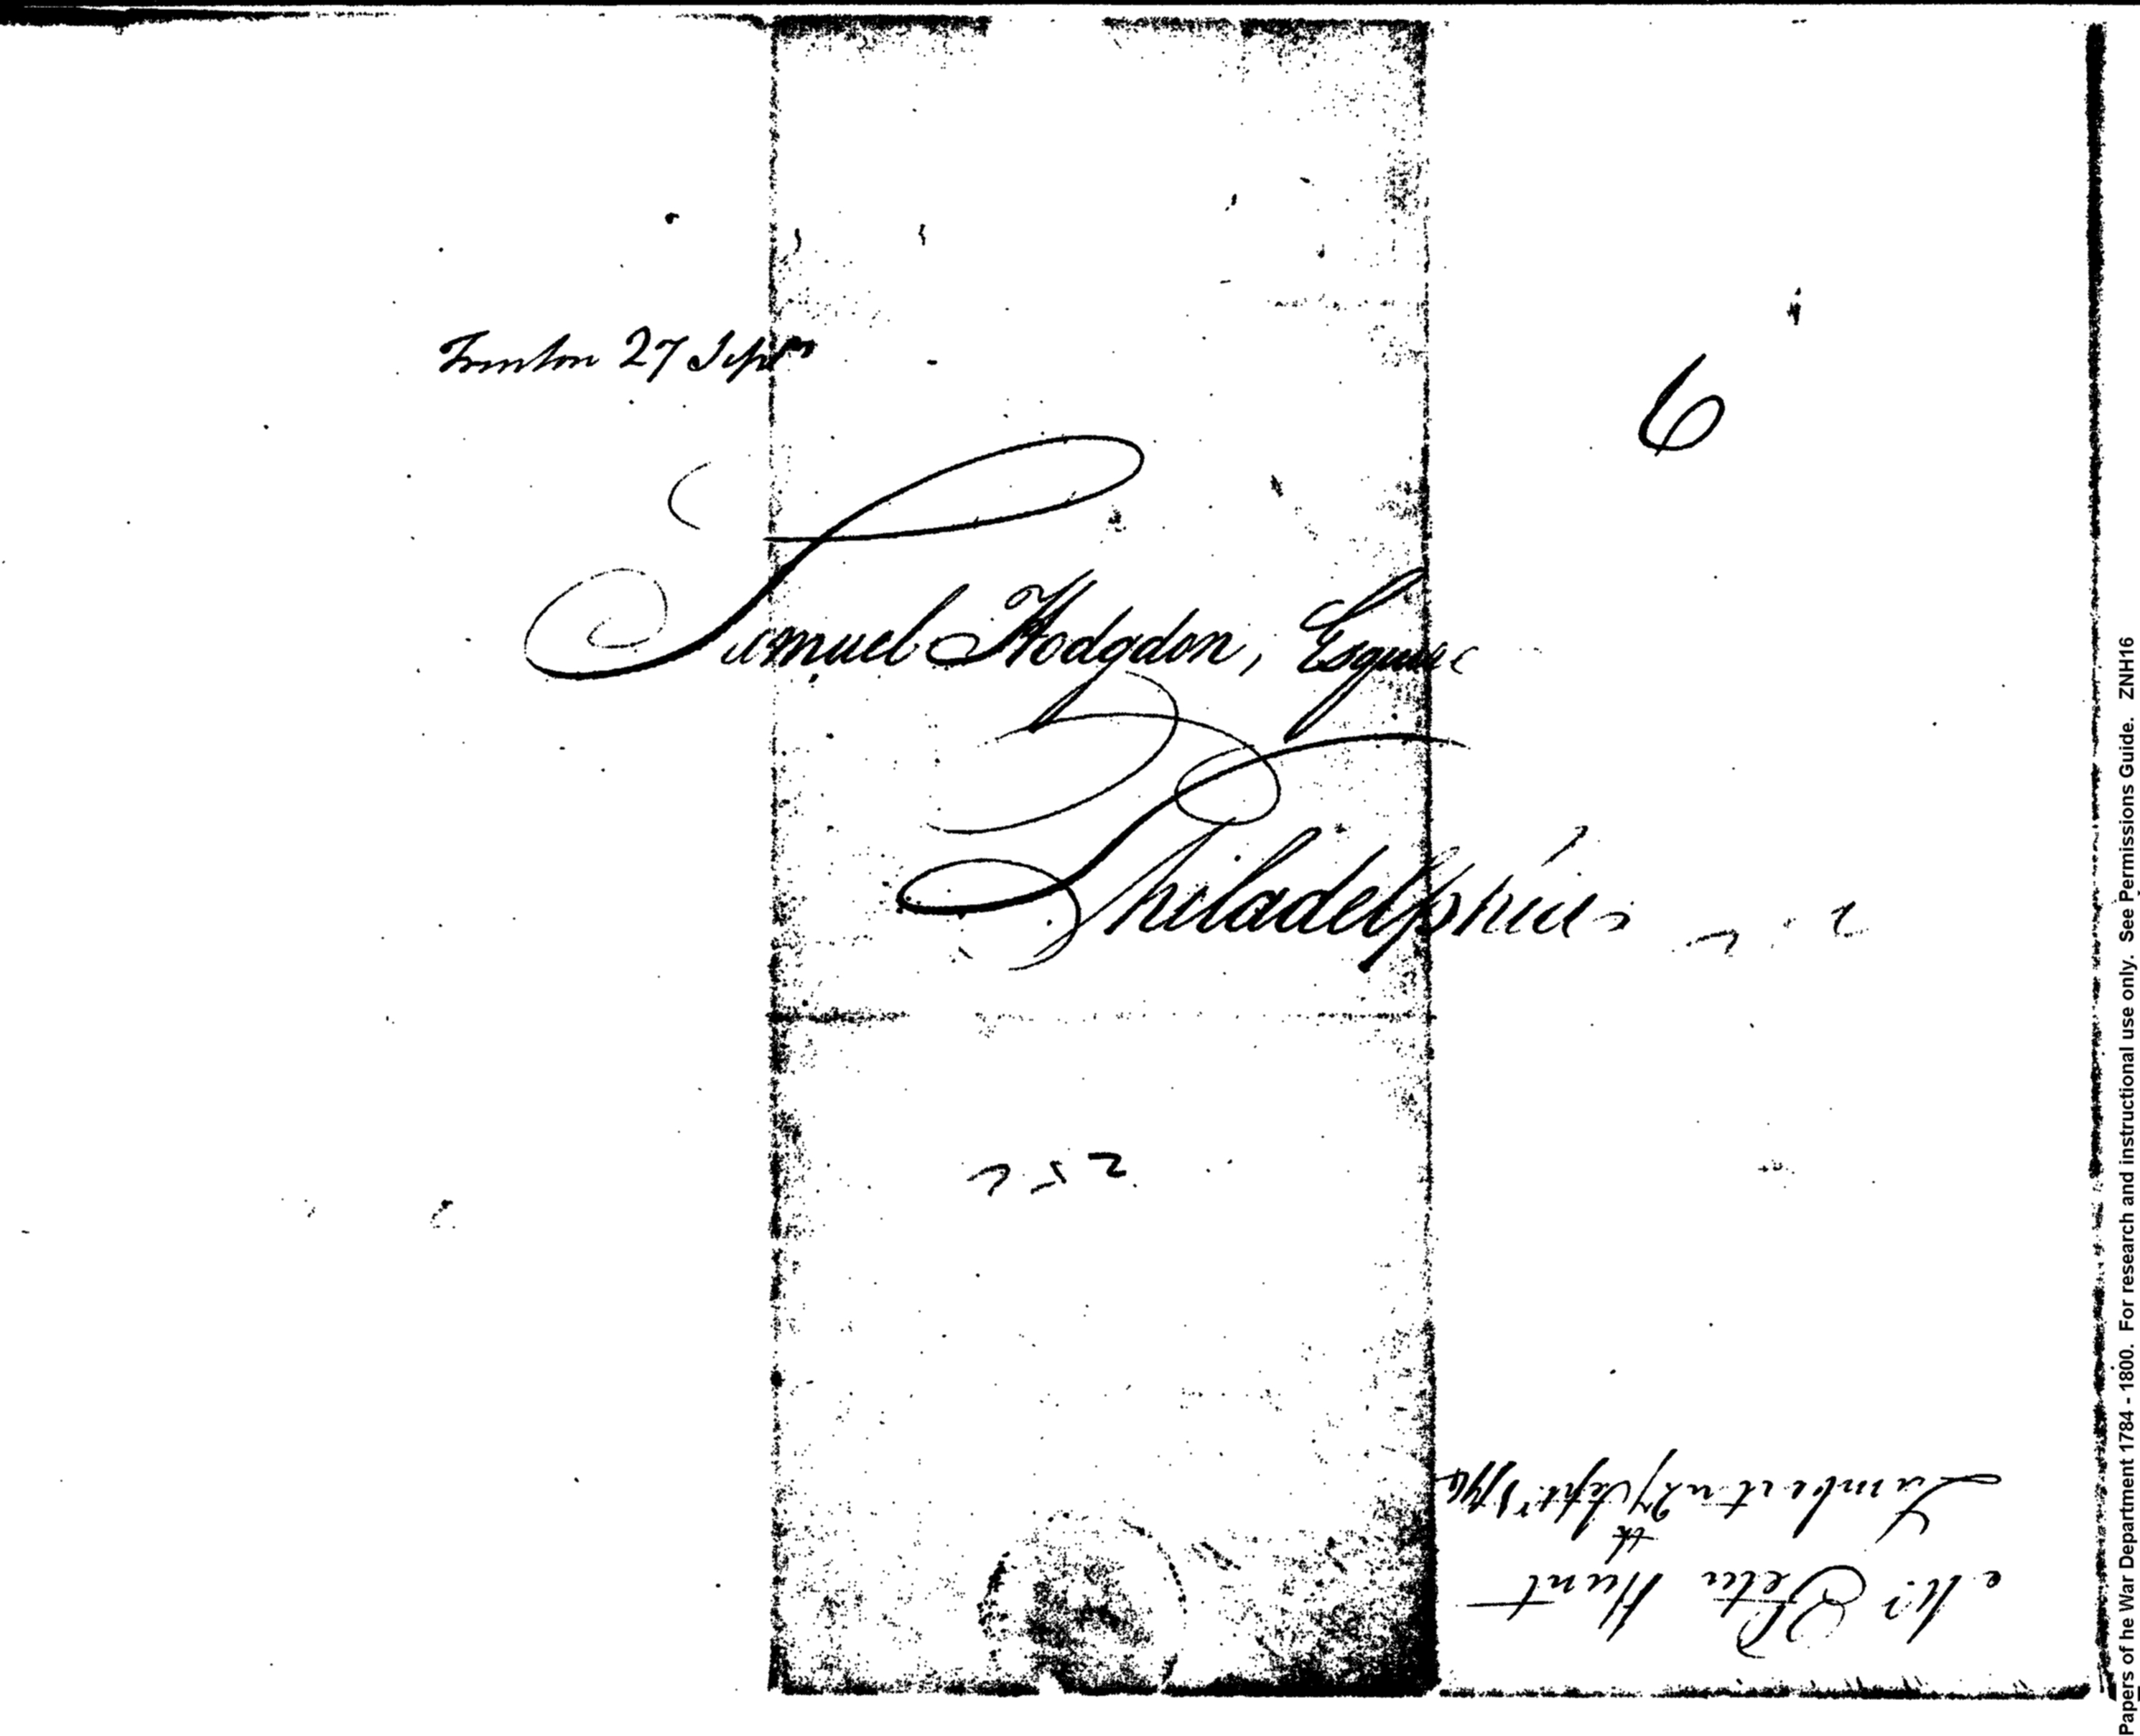 Trenton 27 Septm
6
Samuel Hodgdon, Esquire
Philadelphia
Mr. Peter Hunt
Lamberton 27th Septr. 1796
Papers of he War Department 1784 - 1800. For research and instructional use only. See Permissions Guide. ZNH16